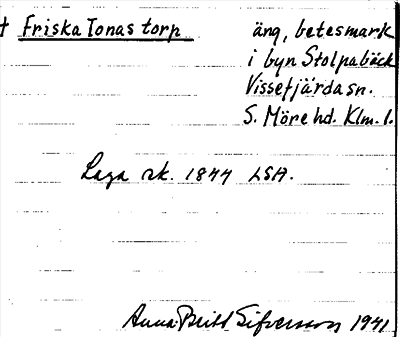 † Friska Jonas torp äng, betesmark
i byn Stolpabäck
Vissefjärda sn.
S. Möre hd. Klm. l.
Laga sk. 1844 LSA.
Anna-Britt Sifversson 1941